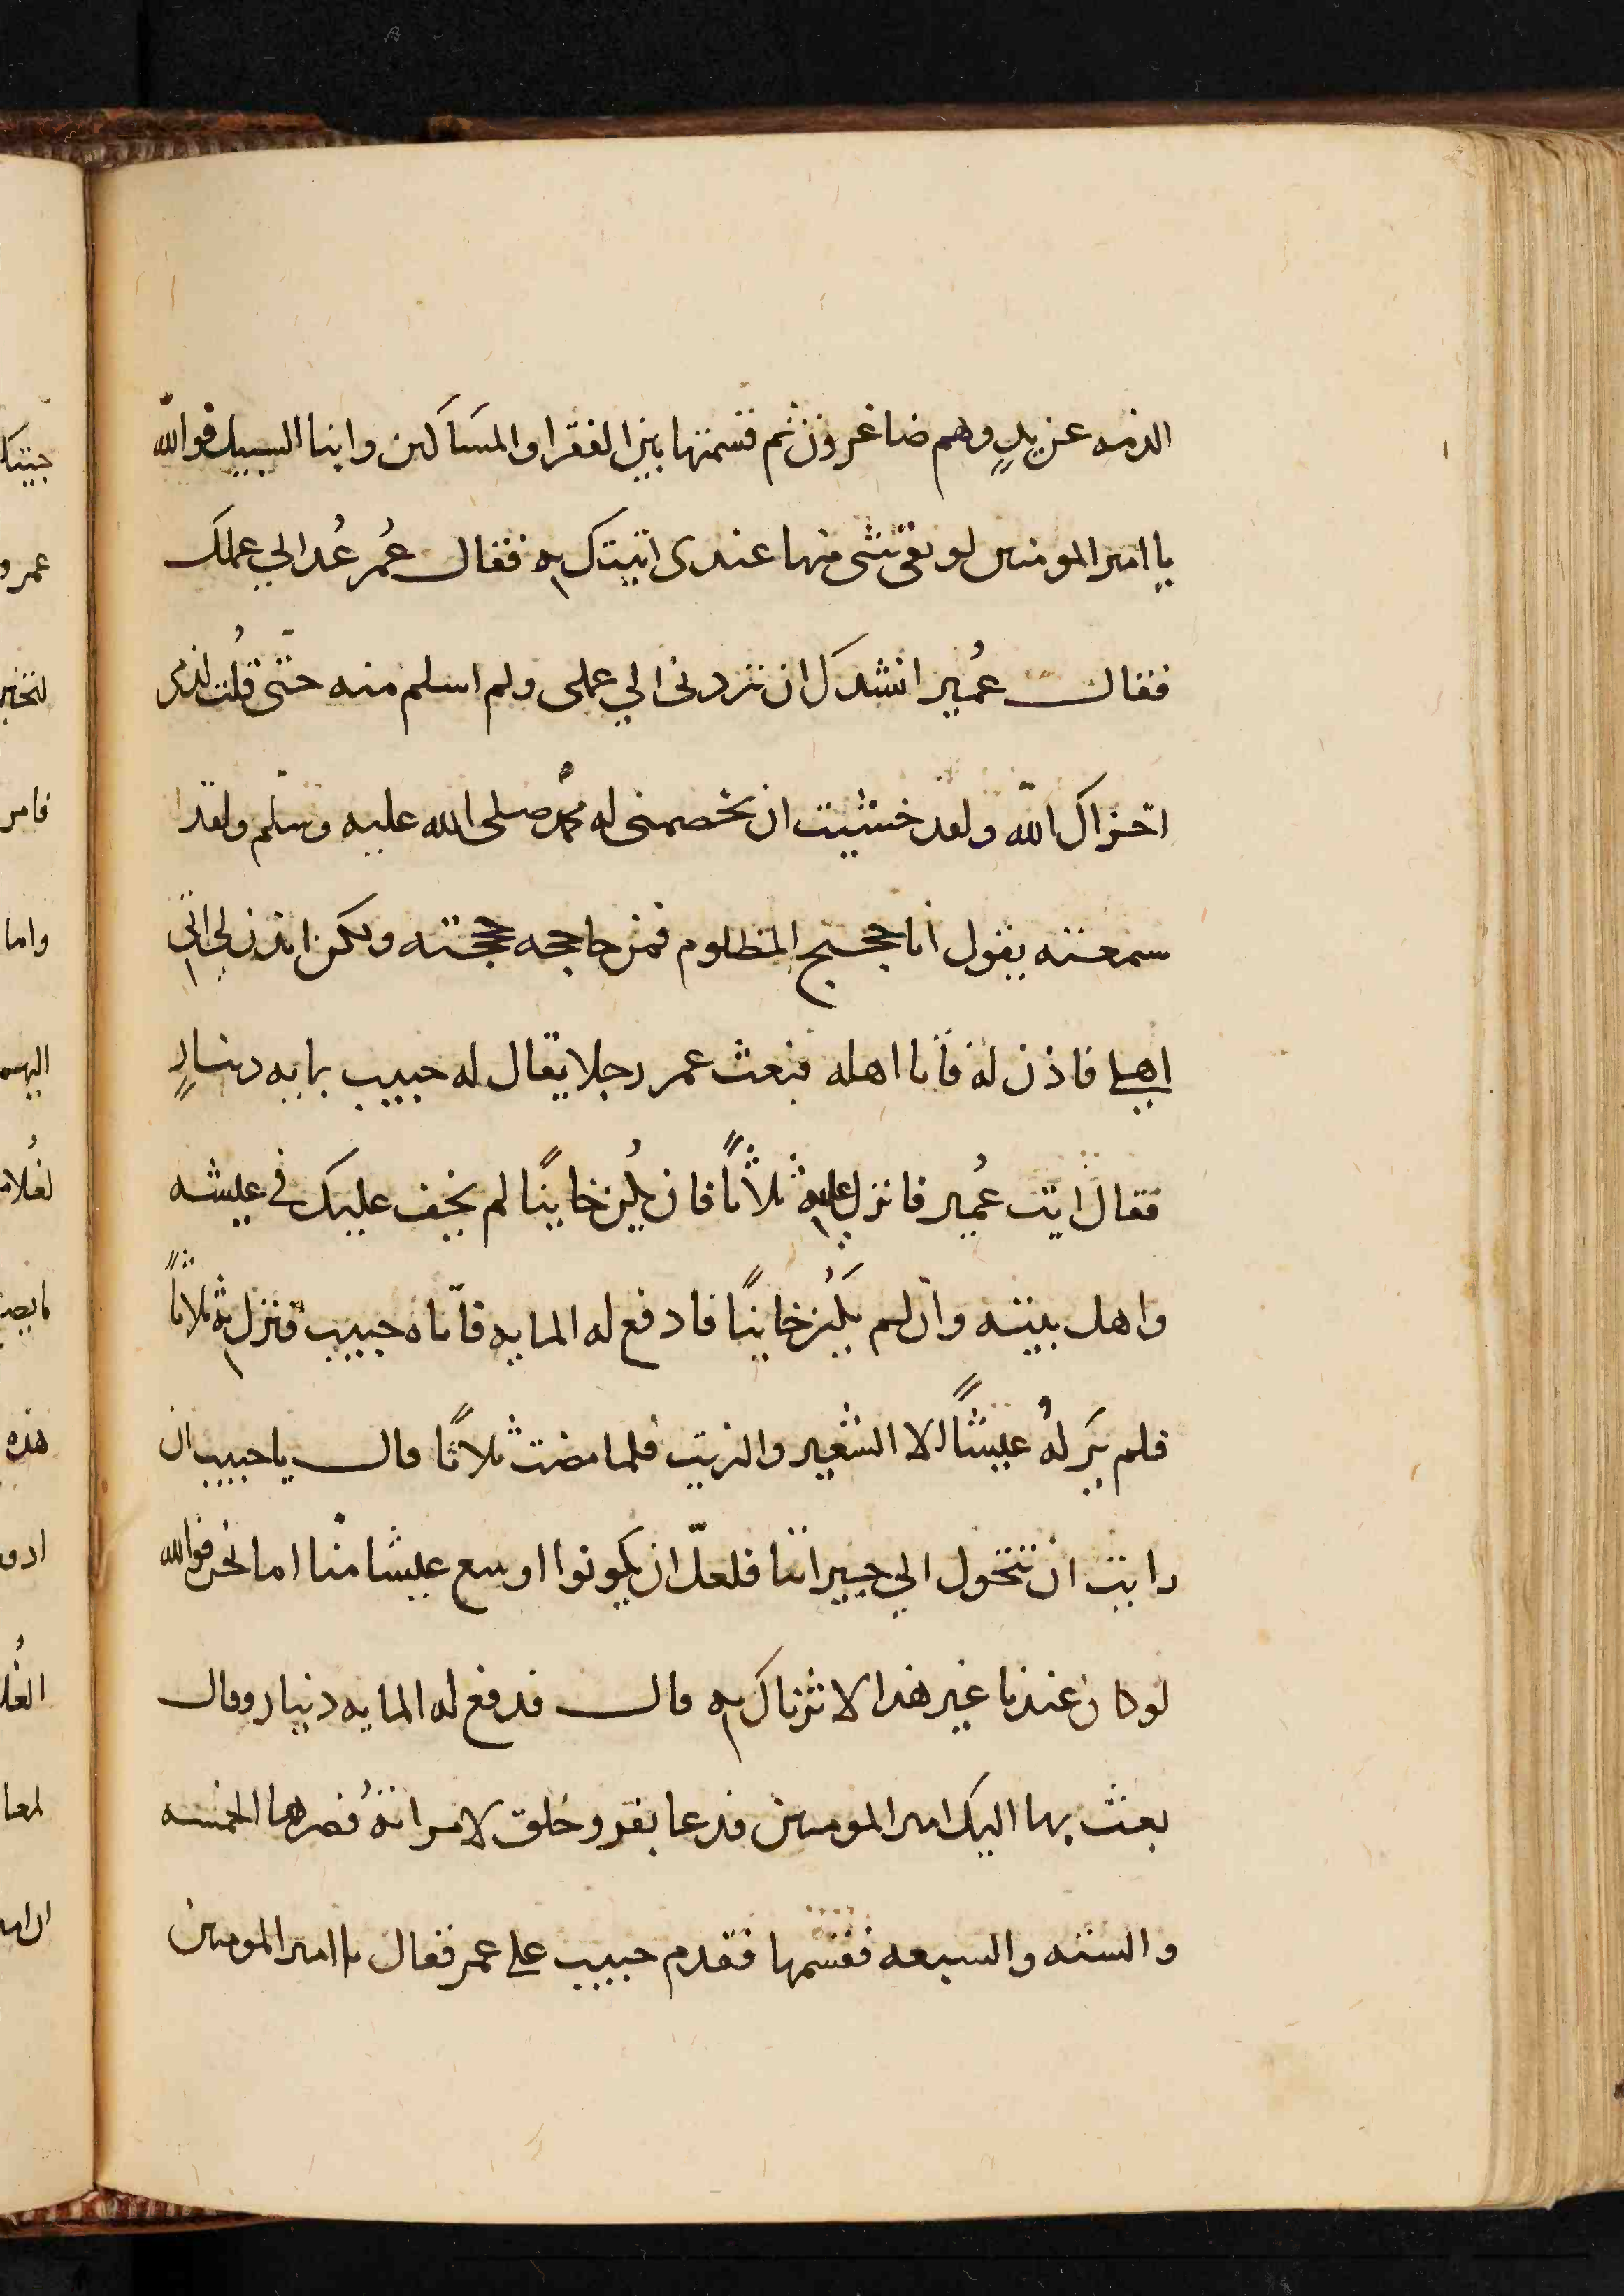 الذمه عن يدٍ وهم صاغرون ثم قسمتها بين الفقرا والمساكين وابنا السبيل فوالله
يا امير المومنين لو بقى شى منها عندى اتيتك به فقال عُمر عُد الي عملك
فقال عُمير انشدك ان تردنى الي عملى ولم اسلم منه حتى قُلت لذمى
اخزاك الله ولقد خشيت ان يخصمنى له محمد صلى الله عليه وسلم ولقد
سمعته يقول انا حجيج المظلوم فمن حاججه حججته ولكن ايذن لي اتى
اهلي فاذن له فاتا اهله فبعث عمر رجلا يقال له حبيب بمايه دينارٍ
فقال ايت عُمير فانزل عليه ثلاثاً فان يكُن خاينًا لم يخف عليك في عيشه
واهل بيته وان لم يكُن خاينًا فادفع له المايه فاتاه حبيب فنزل به ثلاثاً
فلم يَر لهُ عيشًا الا الشعير والزيت فلما مضت ثلاثا قال يا حبيب ان
رايت ان تتحول الي جيراننا فلعلّ ان يكونوا اوسع عيشا منا اما نحن فوالله
لو كان عندنا غير هذا لاثرناك به قال فدفع له المايه دينار وقال
بعث بها اليك امير المومنين فدعا بفرو خلق لامراتهُ فصرها الخمسه
والسته والسبعه فقسمها فقدم حبيب على عمر فقال يا امير المومنين